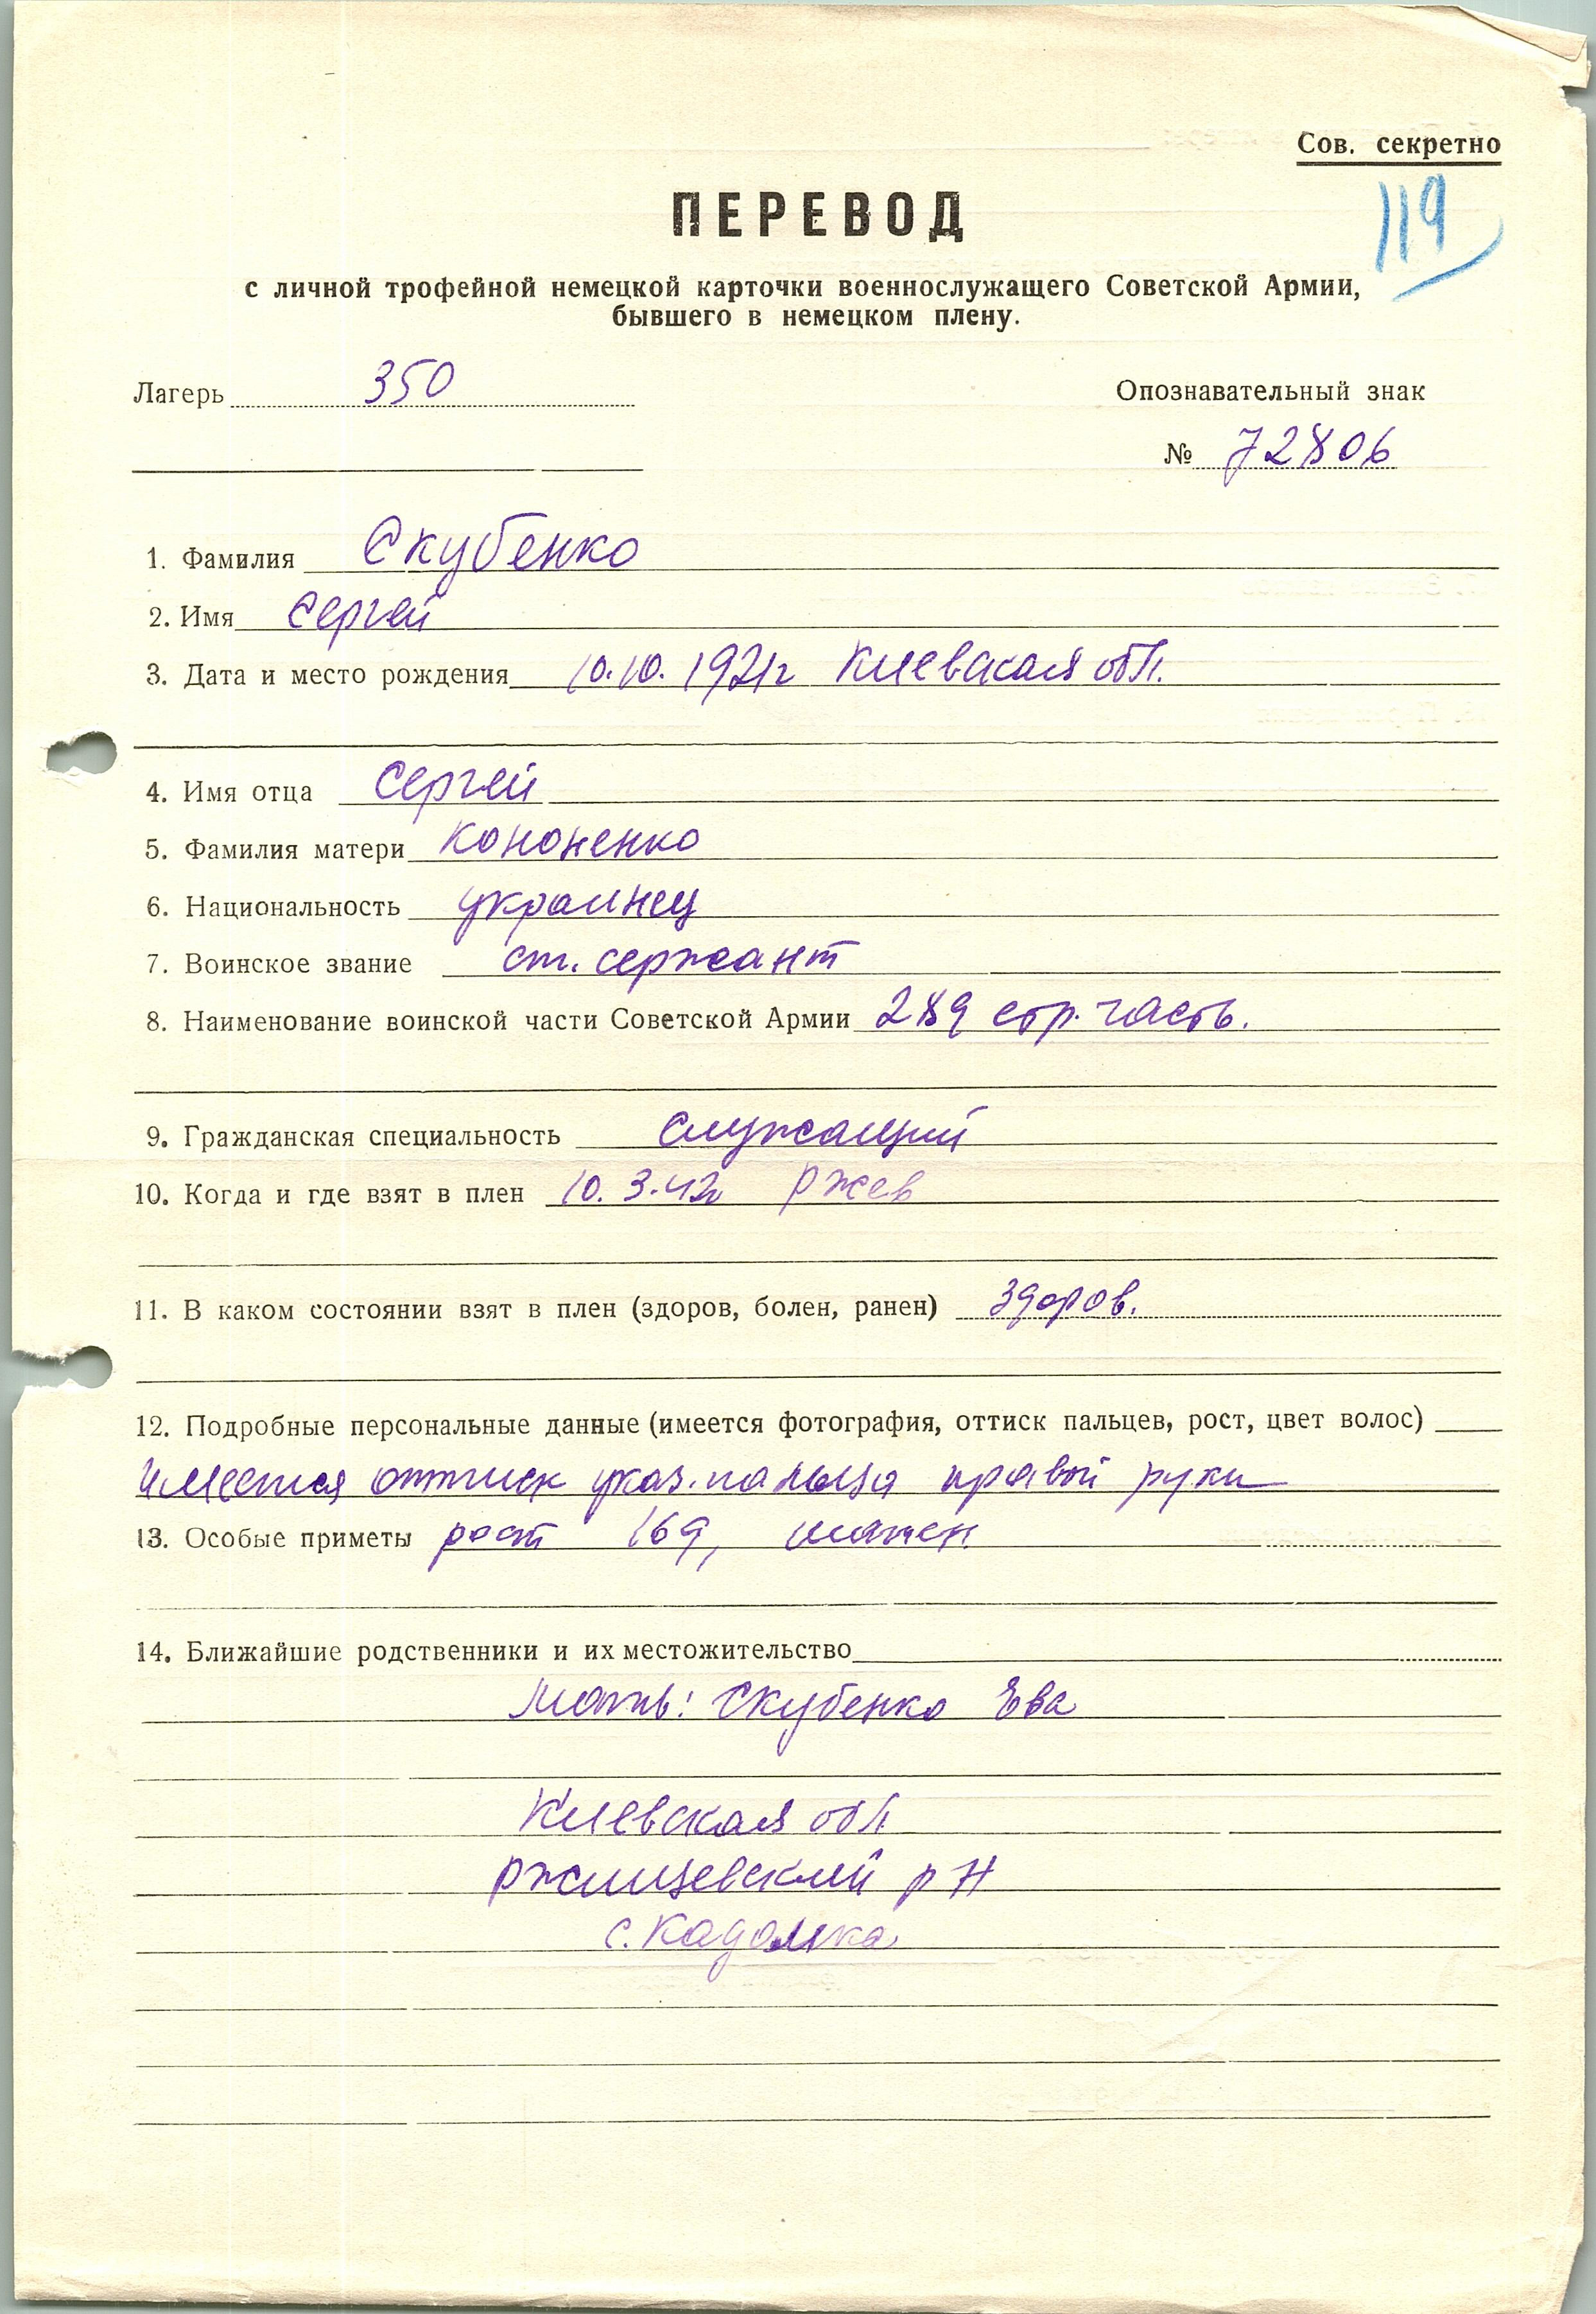 Сов. секретно
119
ПЕРЕВОД
с личной трофейной немецкой карточки военнослужащего Советской Армии,
бывшего в немецком плену.
Лагерь 350
Опознавательный знак
№ 72806
1. Фамилия Скубенко
2. Имя Сергей
3. Дата и место рождения 10.10.1921г Киевская обл.
4. Имя отца Сергей
5. Фамилия матери Кононенко
6. Национальность украинец
7. Воинское звание ст. сержант
8. Наименование воинской части Советской Армии 289 стр. часть.
9. Гражданская специальность служащий
10. Когда и где взят в плен 10.3.42г Ржев
11. В каком состоянии взят в плен (здоров, болен, ранен) здоров.
12. Подробные персональные данные (имеется фотография, оттиск пальцев, рост, цвет волос)
имеется оттиск указ. пальца правой руки
13. Особые приметы рост 169, шатен
14. Ближайшие родственники и их местожительство
Мать: Скубенко Ева
Киевская обл
Ржищевский р н
с. Кадомка